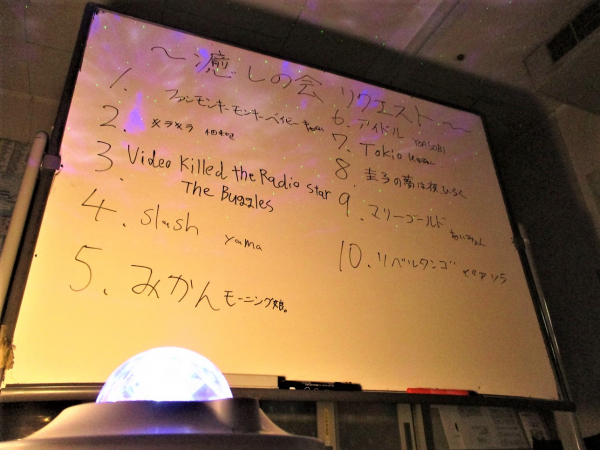 ～癒しの会 リクエスト～
1. ファンモンキーモンキーベイビー
2. メラメラ
3. Video Killed the Radio Star
The Buggles
4. slush yama
5. みかん モーニング娘。
6. アイドル YOASOBI
7. Tokio
8. 圭子の夢は夜ひらく
9. マリーゴールド あいみょん
10. リベルタンゴ ピアソラ